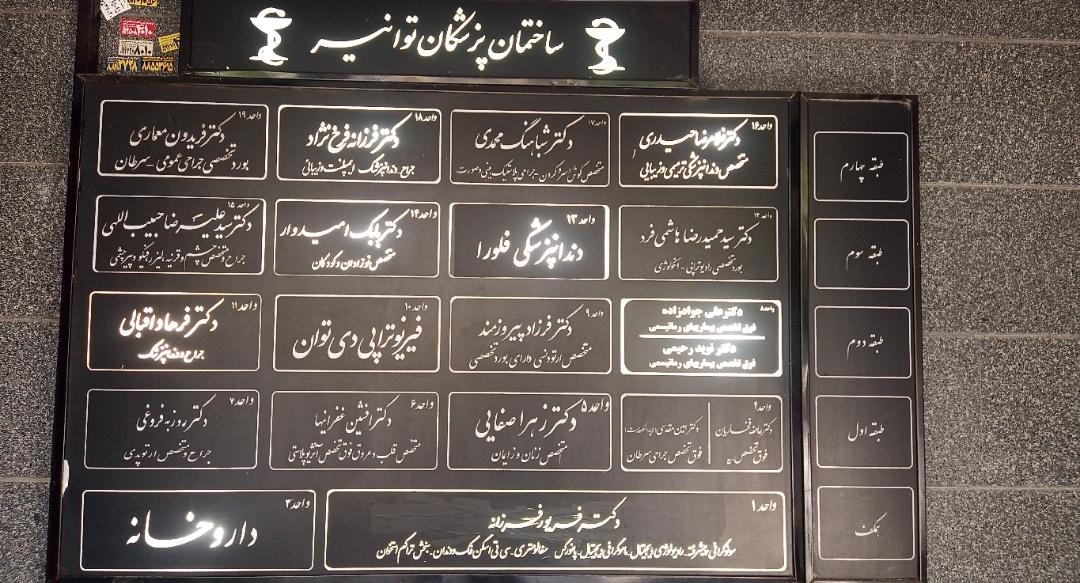 ساختمان پزشکان توانیر
واحد ۱۶
دکتر غلامرضا حیدری
متخصص دندانپزشکی ترمیمی و زیبایی
واحد ۱۷
دکتر شباهنگ محمدی
متخصص گوش و حلق و بینی و صورت
واحد ۱۸
دکتر فرزانه فرخ نژاد
جراح دندانپزشک ایمپلنت و زیبایی
واحد ۱۹
دکتر فریدون معماری
بورد تخصصی جراحی عمومی - سرطان
طبقه چهارم
واحد ۱۲
دکتر سید حمیدرضا هاشمی فرد
بورد تخصصی رادیوتراپی - انکولوژی
واحد ۱۳
دندانپزشکی فلورا
واحد ۱۴
دکتر بابک امیدوار
متخصص نوزادان و کودکان
واحد ۱۵
دکتر سید علیرضا حبیب اللهی
جراح و متخصص چشم و قرنیه
طبقه سوم
دکتر علی جوادزاده
فوق تخصص بیماریهای رماتیسمی
دکتر نوید رحیمی
فوق تخصص بیماریهای رماتیسمی
واحد ۹
دکتر فرزاد پیروزمند
متخصص ارتودنسی دارای بورد تخصصی
واحد ۱۰
فیزیوتراپی دی توان
واحد ۱۱
دکتر فرهاد اقبالی
جراح دندانپزشک
طبقه دوم
واحد ۴
فوق تخصص ریه
فوق تخصص جراحی سرطان
واحد ۵
دکتر زهرا صفایی
متخصص زنان و زایمان
واحد ۶
دکتر افشین غفرانیها
متخصص قلب و عروق فوق تخصص آنژیوپلاستی
واحد ۷
دکتر روزبه فروغی
جراح و متخصص ارتوپدی
طبقه اول
واحد ۱
دکتر فریور فرزانه
سونوگرافی پیشرفته، رادیولوژی دیجیتال، ماموگرافی دیجیتال، پانورکس سفالومتری، سی تی اسکن فک و دندان، سنجش تراکم استخوان
واحد ۲
داروخانه
همکف